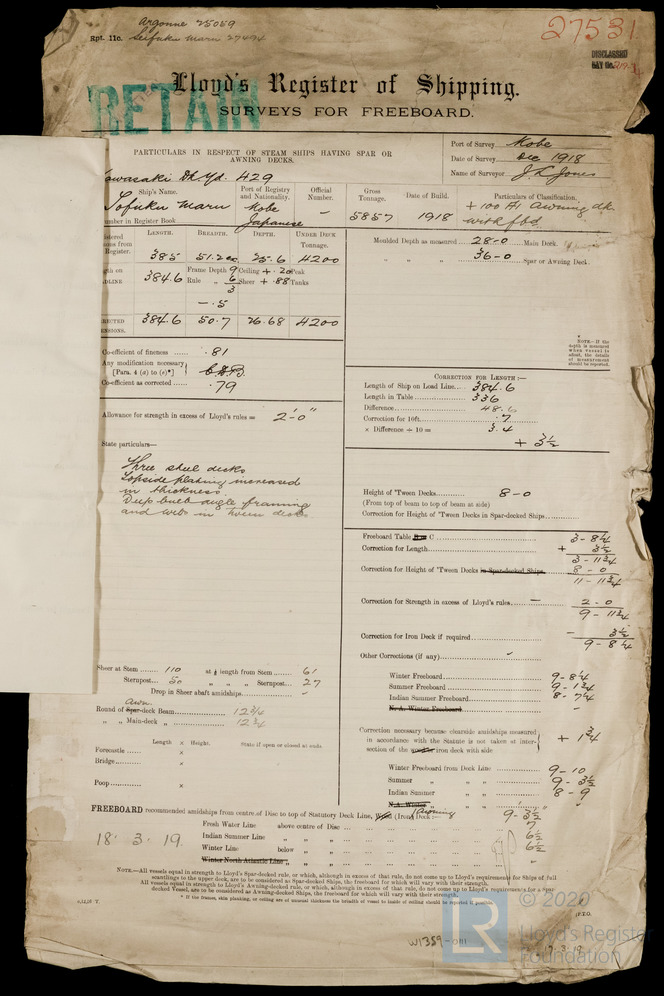 Argonne 25059
Rpt. 11c. Seifuku Maru 27494
27531
DISCLASSED
RETAIN
Lloyd's Register of Shipping.
SURVEYS FOR FREEBOARD.
PARTICULARS IN RESPECT OF STEAM SHIPS HAVING SPAR OR
AWNING DECKS.
Port of Survey Kobe
Date of Survey Dec 1918
Name of Surveyor J. L. Jones
Kawasaki Dk. Yd. 429
Ship's Name. Port of Registry and Nationality. Official Number. Gross Tonnage. Date of Build. Particulars of Classification.
Tofuku Maru Kobe Japanese - 5857 1918 +100 A1 Awning dk. with fbd
Number in Register Book
LENGTH. BREADTH. DEPTH. UNDER DECK TONNAGE.
Register. 385 51.2 25.6 4200
384.6 Frame Depth 9 Ceiling + .20 Peak
Rule 6 Sheer + .88 Tanks
3
- .5
384.6 50.7 26.68 4200
Moulded Depth as measured 28-0 Main Deck.
" " " 36-0 Spar or Awning Deck.
NOTE.—If the depth is measured when vessel is afloat, the details of measurement should be reported.
Co-efficient of fineness ...... .81
Any modification necessary
[Para. 4 (a) to (e)*]
Co-efficient as corrected ...... .79
Allowance for strength in excess of Lloyd's rules = 2'-0"
State particulars—
Three steel decks
Topside plating increased
in thickness.
Deep bulb angle framing
and webs in tween decks
CORRECTION FOR LENGTH:—
Length of Ship on Load Line.... 384.6
Length in Table 336
Difference 48.6
Correction for 10ft. .7
× Difference ÷ 10 = 3.4
+ 3½
Height of 'Tween Decks 8-0
(From top of beam to top of beam at side)
Correction for Height of 'Tween Decks in Spar-decked Ships
Freeboard Table C 3-8¼
Correction for Length + 3½
3-11¾
Correction for Height of 'Tween Decks in Spar-decked Ships 8-0
11-11¾
Correction for Strength in excess of Lloyd's rules - 2-0
9-11¾
Correction for Iron Deck if required - 3½
9-8¼
Other Corrections (if any)
Winter Freeboard 9-8¼
Summer Freeboard 9-1¾
Indian Summer Freeboard 8-7¼
N. A. Winter Freeboard -
Correction necessary because clearside amidships measured
in accordance with the Statute is not taken at inter-
section of the iron deck with side + 1¾
Winter Freeboard from Deck Line 9-10
Summer " " " 9-3½
Indian Summer " " 8-9
N.A. Winter " "
Sheer at Stem 110 at ⅛ length from Stem 61
Sternpost 50 " " " Sternpost 27
Drop in Sheer abaft amidships
Awn.
Round of Spar-deck Beam 12¾
" " Main-deck " 12¾
Length × Height. State if open or closed at ends
Forecastle ×
Bridge ×
Poop ×
FREEBOARD recommended amidships from centre of Disc to top of Statutory Deck Line, Wood (Iron) Awning Deck:— 9-3½
Fresh Water Line above centre of Disc 7
18. 3. 19. Indian Summer Line " " 6½
Winter Line below " " 6½
Winter North Atlantic Line " "
NOTE.—All vessels equal in strength to Lloyd's Spar-decked rule, or which, although in excess of that rule, do not come up to Lloyd's requirements for Ships of full
scantlings to the upper deck, are to be considered as Spar-decked Ships, the freeboard for which will vary with their strength.
All vessels equal in strength to Lloyd's Awning-decked rule, or which, although in excess of that rule, do not come up to Lloyd's requirements for a Spar-
decked Vessel, are to be considered as Awning-decked Ships, the freeboard for which will vary with their strength.
* If the frames, skin planking, or ceiling are of unusual thickness the breadth of vessel to inside of ceiling should be reported if possible.
[P.T.O.
W1359-0111
17-3-19
LR
© 2020
Lloyd's Register
Foundation